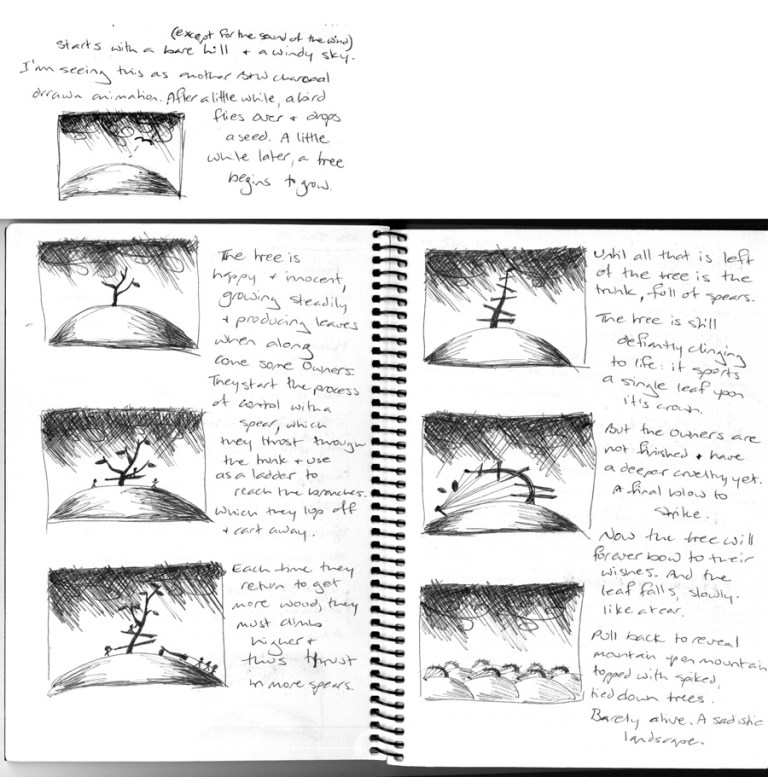 (except for the sound of the wind)
starts with a bare hill + a windy sky.
I'm seeing this as another B+W charcoal
drrawn animation. After a little while, a bird
flies over + drops
a seed. A little
while later, a tree
begins to grow.
The tree is
happy + innocent,
growing steadily
+ producing leaves
when along
come some owners.
They start the process
of control with a
spear, which
they thrust through
the trunk + use
as a ladder to
reach the branches.
Which they lop off
+ cart away.
Each time they
return to get
more wood, they
must climb
higher +
thus thrust
in more spears.
Until all that is left
of the tree is the
trunk, full of spears.
The tree is still
defiantly clinging
to life: it sports
a single leaf upon
it's crown.
But the owners are
not finished + have
a deeper cruelty yet.
A final blow to
strike.
Now the tree will
forever bow to their
wishes. And the
leaf falls, slowly.
like a tear.
Pull back to reveal
mountain upon mountain
topped with spiked,
tied down trees.
Barely alive. A sadistic
landscape.